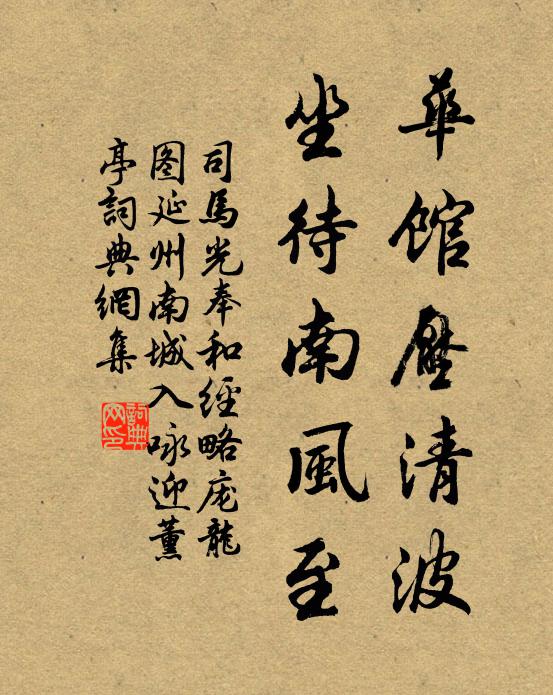 華館壓清波
坐待南風至
司馬光奉和經略庞龍
图延州南城入咏迎薰
亭詞典網集
詞典网印